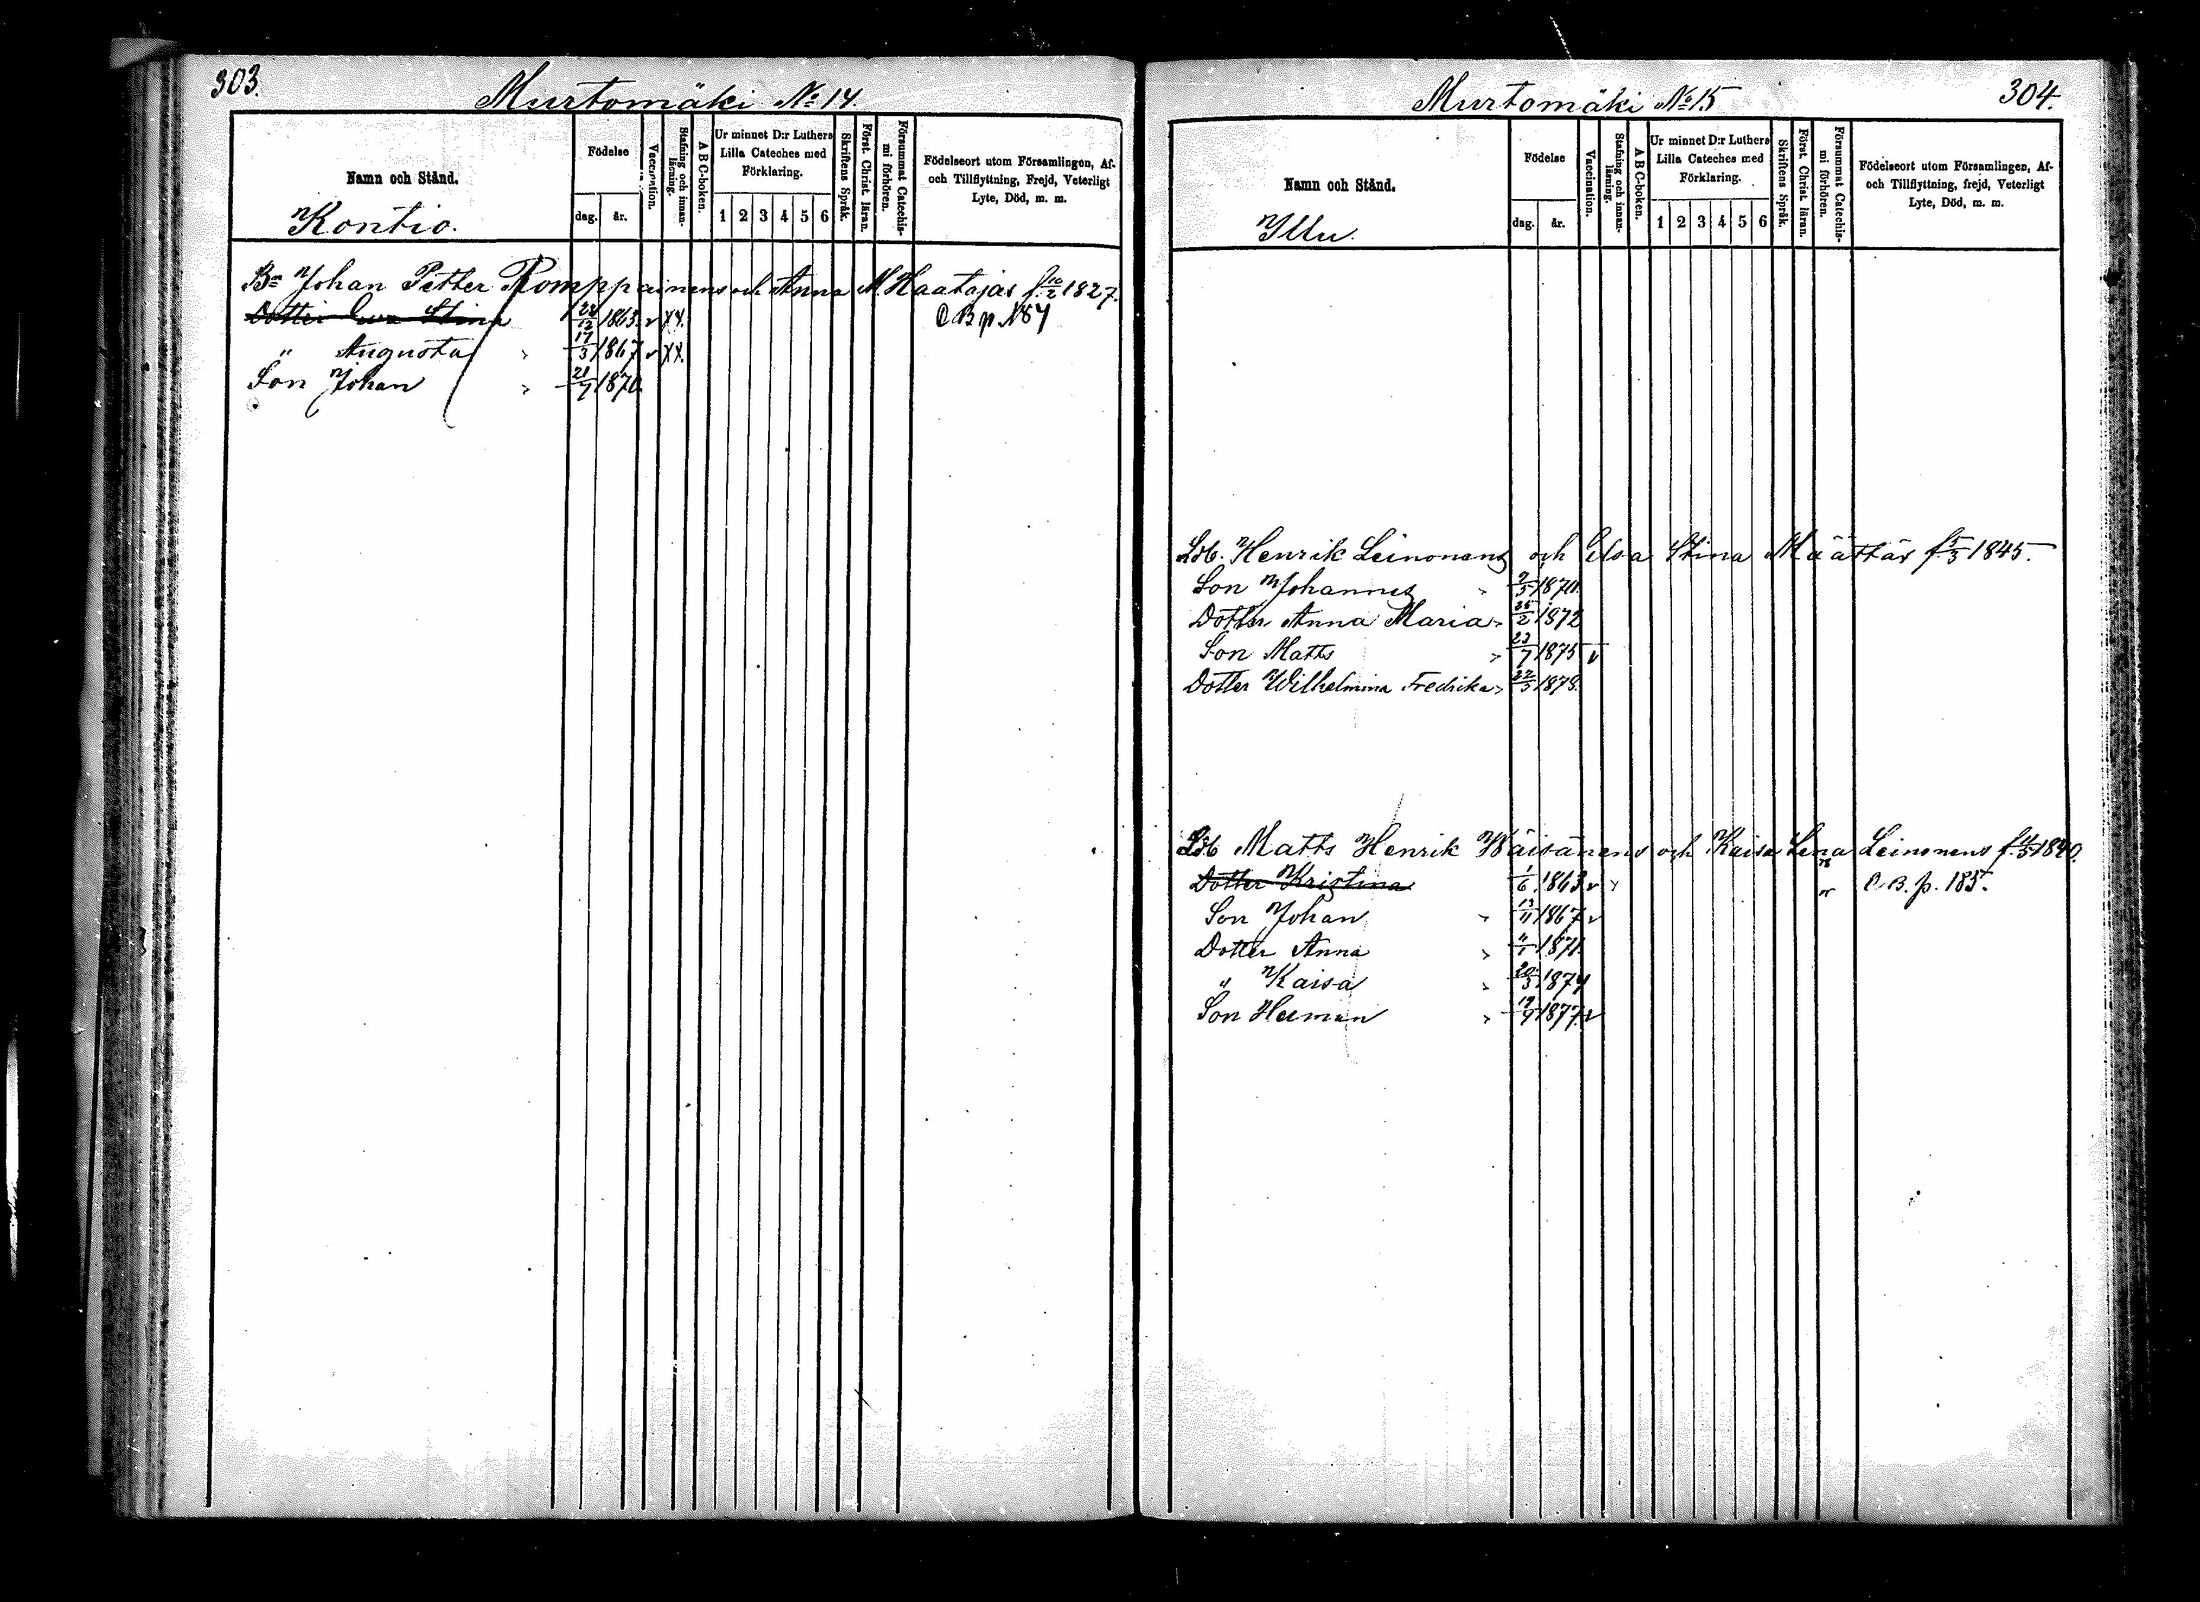 303.
Murtomäki No 14.
Namn och Stånd.
Kontio.
Födelse
dag. år.
Vaccination.
Stafning och innan-läsning.
A B C-boken.
Ur minnet D:r Luthers Lilla Cateches med Förklaring.
1 2 3 4 5 6
Skriftens Språk.
Först. Christ. läran.
Försummat Catechis-mi förhören.
Födelseort utom Församlingen, Af-
och Tillflyttning, Frejd, Veterligt
Lyte, Död, m. m.
Bn Johan Petter Romppainens och Anna M. Haatajas f. 10/2 1827.
Dotter Eva Stina 1863 v xx. C B p N 87
" Augusta 17/3 1867 v xx.
Son Johan 21/7 1870.
Murtomäki No 15
304.
Namn och Stånd.
Yllu.
Födelse
dag. år.
Vaccination.
Stafning och innan-läsning.
A B C-boken.
Ur minnet D:r Luthers Lilla Cateches med Förklaring.
1 2 3 4 5 6
Skriftens Språk.
Först. Christ. läran.
Försummat Catechis-mi förhören.
Födelseort utom Församlingen, Af-
och Tillflyttning, frejd, Veterligt
Lyte, Död, m. m.
Ldb. Henrik Leinonens och Elsa Stina Määttäs f. 5/3 1845.
Son Johannes 2/5 1870.
Dotter Anna Maria 25/2 1872
Son Matts 23/7 1875 v
Dotter Wilhelmina Fredrika 22/5 1878.
Ldb Matts Henrik Wäisänens och Kaisa Lena Leinonens f. 1840.
Dotter Kristina 1/6 1863 v C. B. p. 185.
Son Johan 13/11 1867 v
Dotter Anna 1871.
" Kaisa 20/3 1874
Son Herman 1877 v